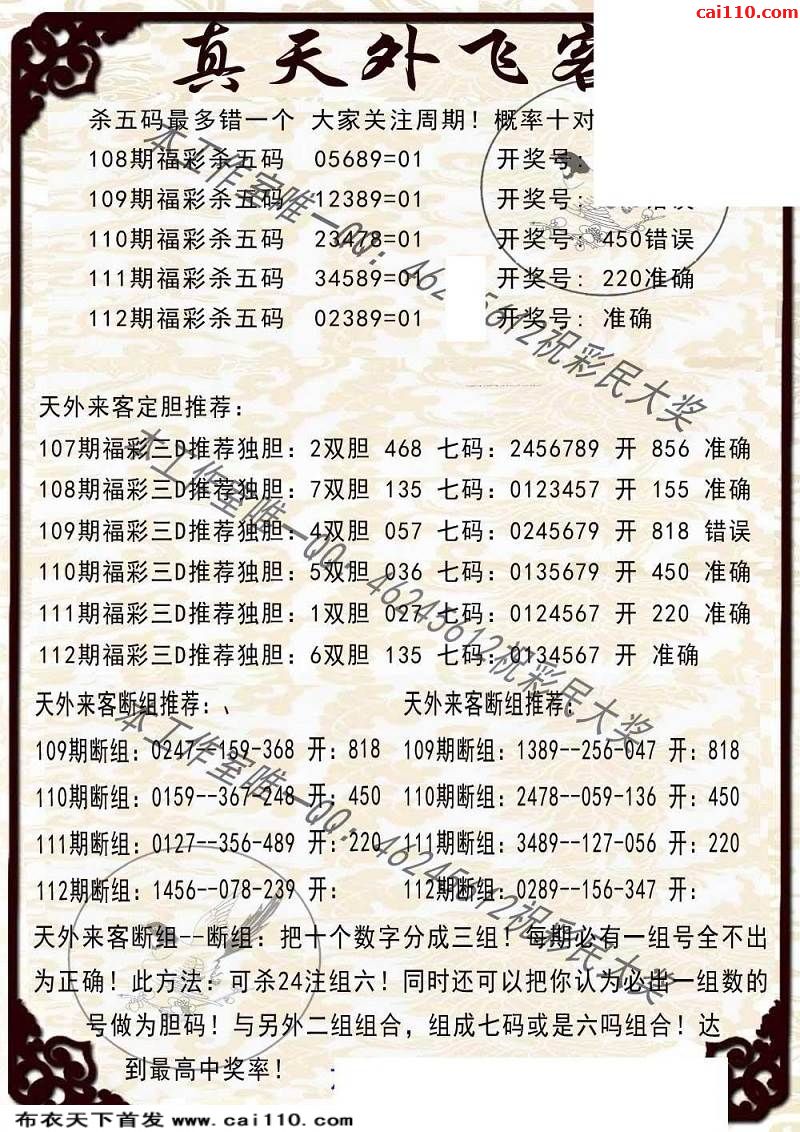 cai110.com
真天外飞客
杀五码最多错一个 大家关注周期！概率十对
108期福彩杀五码 05689=01 开奖号:
109期福彩杀五码 12389=01 开奖号: 错误
110期福彩杀五码 23478=01 开奖号: 450错误
111期福彩杀五码 34589=01 开奖号: 220准确
112期福彩杀五码 02389=01 开奖号: 准确
本工作室唯一QQ：46245612祝彩民大奖
天外来客定胆推荐：
107期福彩三D推荐独胆：2双胆 468 七码：2456789 开 856 准确
108期福彩三D推荐独胆：7双胆 135 七码：0123457 开 155 准确
109期福彩三D推荐独胆：4双胆 057 七码：0245679 开 818 错误
110期福彩三D推荐独胆：5双胆 036 七码：0135679 开 450 准确
111期福彩三D推荐独胆：1双胆 027 七码：0124567 开 220 准确
112期福彩三D推荐独胆：6双胆 135 七码：0134567 开 准确
本工作室唯一QQ：46245612祝彩民大奖
天外来客断组推荐：、 天外来客断组推荐：
109期断组：0247--159-368 开：818 109期断组：1389--256-047 开：818
110期断组：0159--367-248 开：450 110期断组：2478--059-136 开：450
111期断组：0127--356-489 开：220 111期断组：3489--127-056 开：220
112期断组：1456--078-239 开： 112期断组：0289--156-347 开：
本工作室唯一QQ：46245612祝彩民大奖
天外来客断组--断组：把十个数字分成三组！每期必有一组号全不出
为正确！此方法：可杀24注组六！同时还可以把你认为必出一组数的
号做为胆码！与另外二组组合，组成七码或是六吗组合！达
到最高中奖率！
布衣天下首发 www.cai110.com